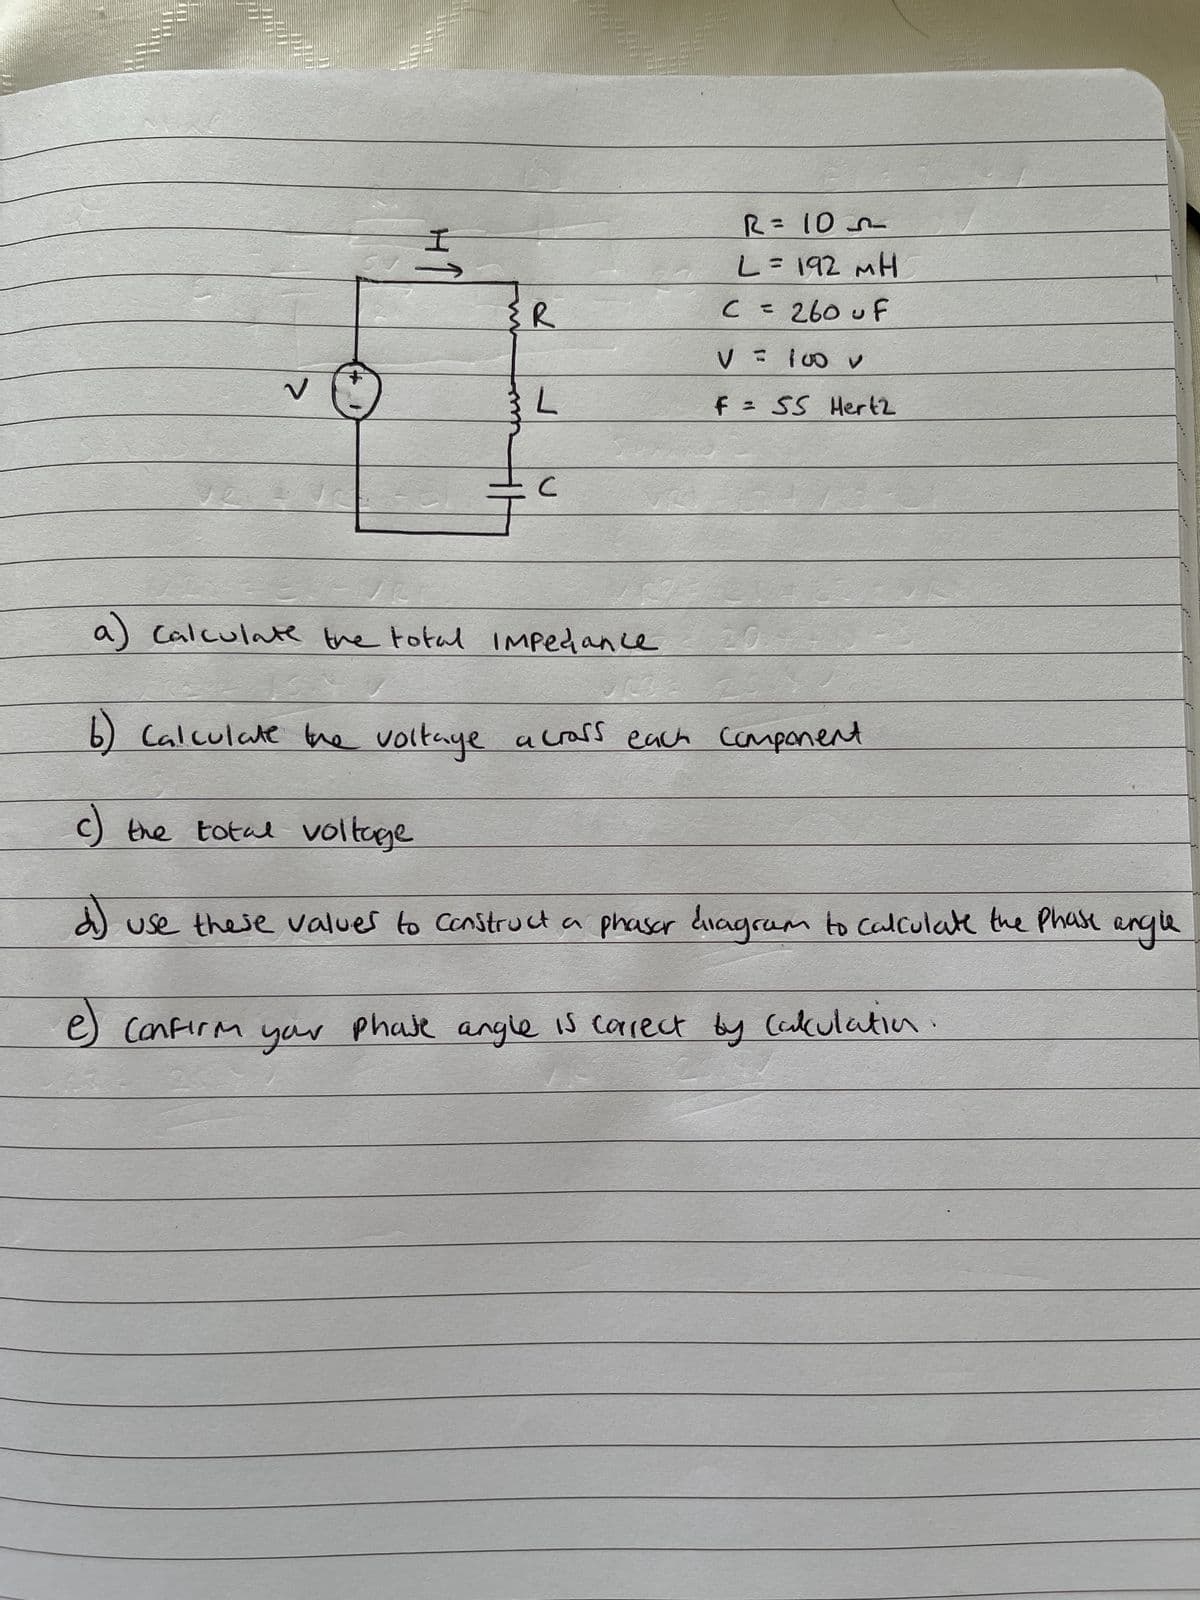 I
R = 10 Ω
L = 192 mH
R
C = 260 uF
V = 100 V
V
+
-
L
F = 55 Hertz
C
a) Calculate the total impedance
b) Calculate the voltage across each component
c) the total voltage
d) use these values to construct a phasor diagram to calculate the phase angle
e) Confirm your phase angle is correct by calculation.